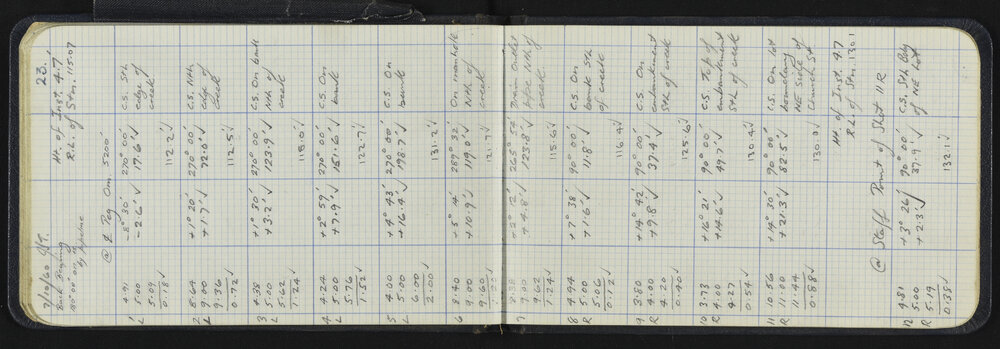 23.
7/10/60
Back Bearing
180° 00' on ℄
by pipeline
Ht. of Inst. 4.7'
R.L. of Stn. 115.07
@ ℄ Peg Om 5200'
1 4.91 -8° 30' 270° 00' C.S. Sth
5.00 -2.6'✓ 17.6'✓ edge of
5.09 creek
L 0.18✓ 112.2✓
2 8.64 +1° 20' 270° 00' C.S. Nth.
9.00 +1.7'✓ 72.0'✓ edge of
9.36 creek
L 0.72✓ 112.5✓
3 4.38 +1° 30' 270° 00' C.S. On bank
5.00 +3.2'✓ 123.9'✓ Nth of
5.62 creek
L 1.24✓ 113.0✓
4 4.24 +2° 59' 270° 00' C.S. On
5.00 +7.9'✓ 151.6'✓ bank
5.76
L 1.52✓ 122.7✓
5 4.00 +4° 43' 270° 00' C.S. On
5.00 +16.4'✓ 198.7'✓ bank
6.00
L 2.00✓ 131.2✓
6 8.40 +5° 14' 289° 32' On manhole
9.00 +10.9'✓ 119.0'✓ Nth of
9.60 creek
121.7✓
7 8.38 +2° 12' 265° 54' Drain Outlet
9.00 +4.8'✓ 123.8'✓ pipe Nth of
9.62 creek
1.24✓ 115.6✓
8 4.94 +7° 38' 90° 00' C.S. On
R 5.00 +1.6'✓ 11.8'✓ bank Sth
5.06 of creek
0.12✓ 116.4✓
9 3.80 +14° 42' 90° 00' C.S. On
R 4.00 +9.8'✓ 37.4'✓ embankment
4.20 Sth of creek
0.40✓ 125.6✓
10 3.73 +16° 21' 90° 00' C.S. Top of
R 4.00 +14.6'✓ 49.7'✓ embankment
4.27 Sth of creek
0.54✓ 130.4✓
11 10.56 +14° 30' 90° 00' C.S. On lot
R 11.00 +21.3'✓ 82.5'✓ boundary
11.44 NE side of
0.88✓ 130.0✓ Church St
Ht. of Inst 4.7
R.L. of Stn. 130.1
@ Staff Point of Shot 11R
12 4.81 +3° 26' 90° 00' C.S. Sth Bdy
R 5.00 +2.3'✓ 37.9'✓ of NE lot
5.19
0.38✓ 132.1✓